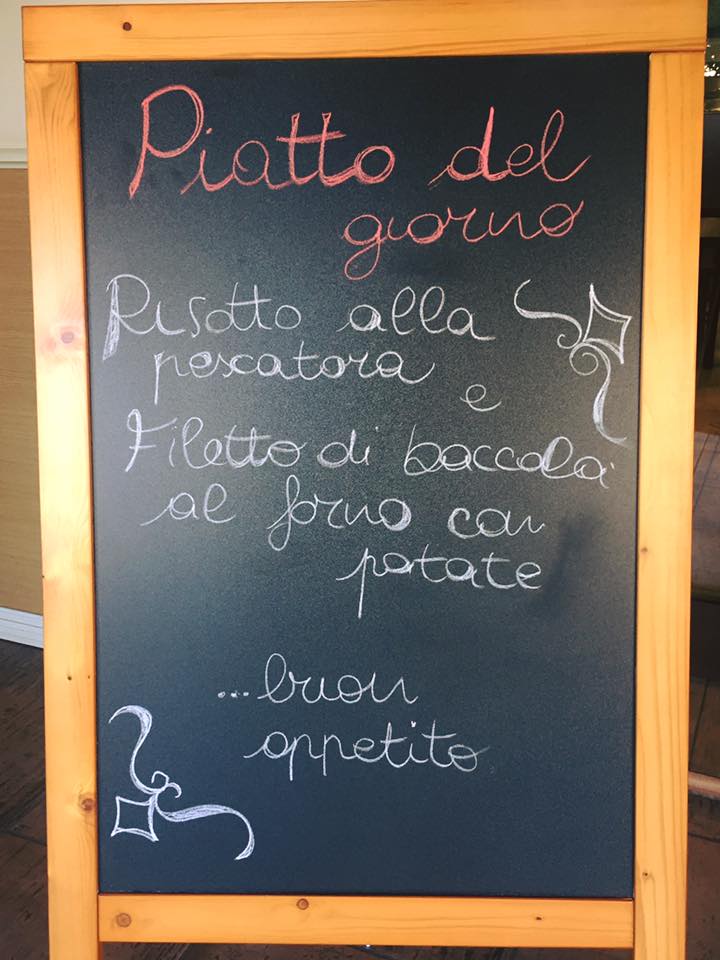 Piatto del
giorno
Risotto alla
pescatora
e
Filetto di baccalà
al forno con
patate
...buon
appetito